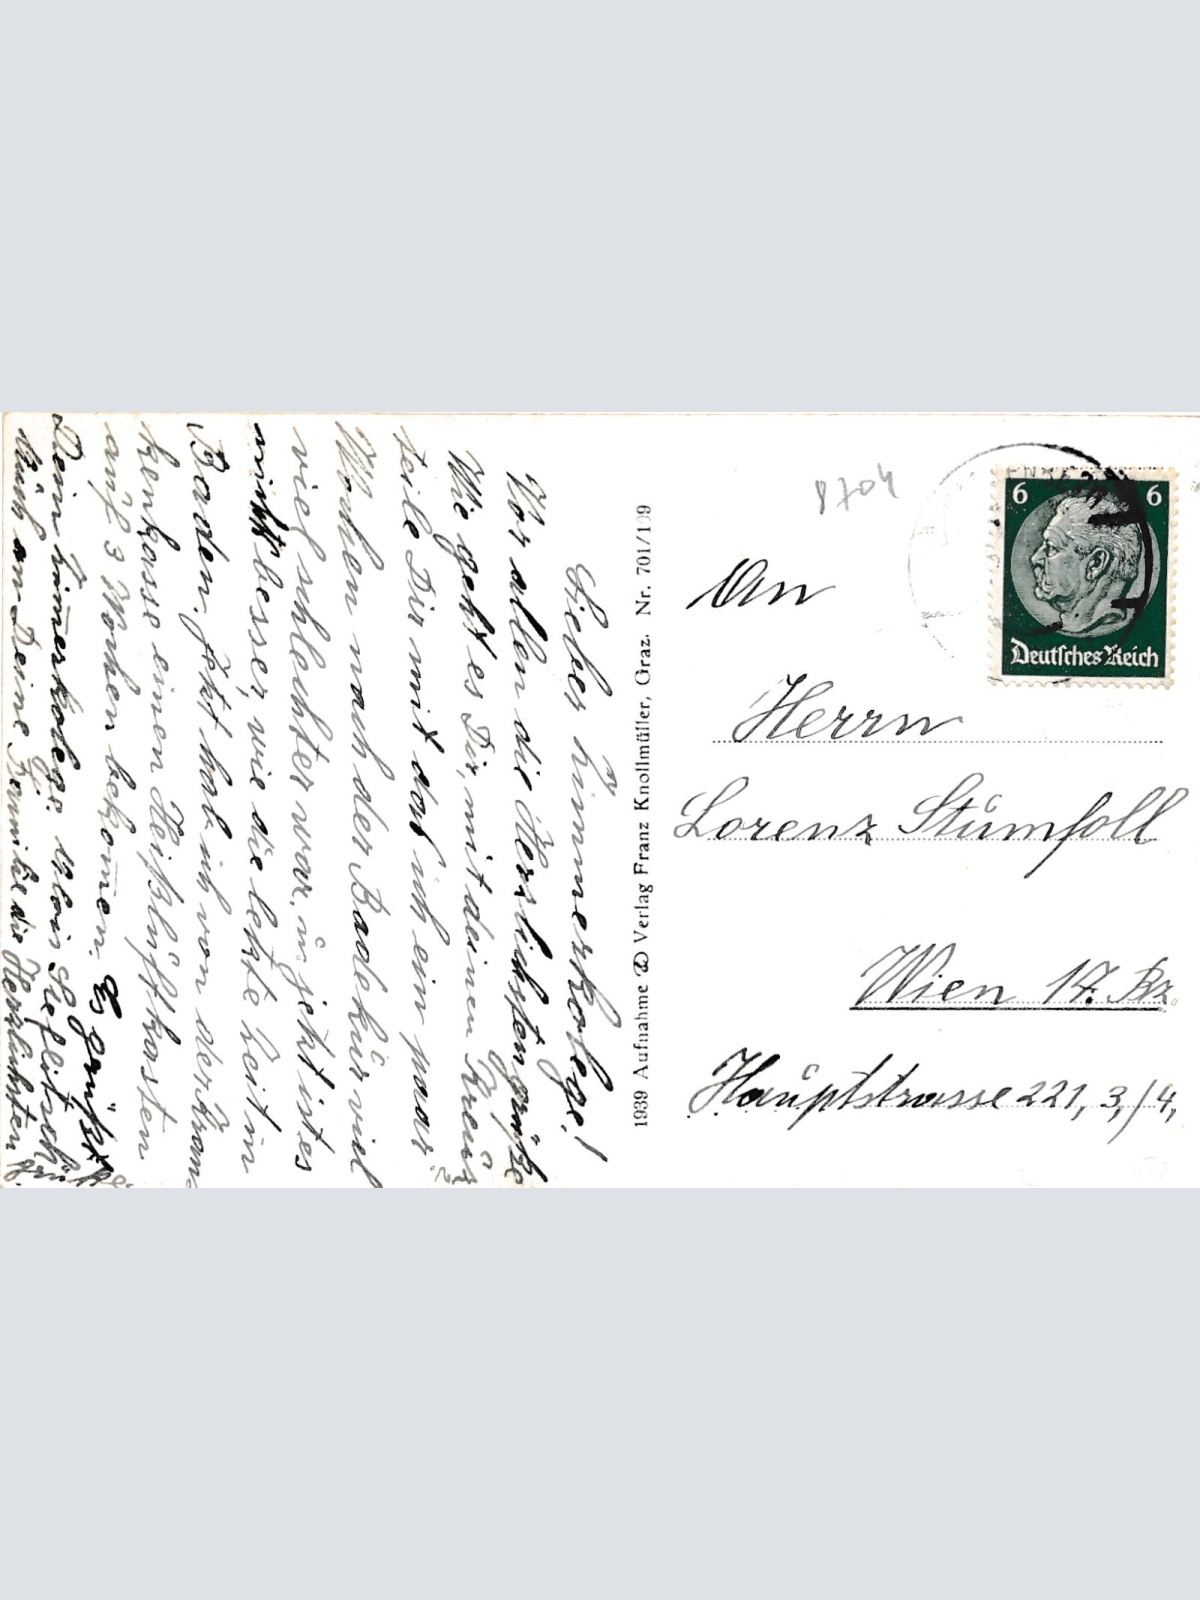 Lieber Zimmerkolege!
Vor allem die Herzlichsten grüße
Wie geht es Dir, mit deinen Kreuz
teile Dir mit das ich ein paar
Wochen nach der Badekur viel
viel schlechter war, u jetzt ist es
nicht besser, wie die letzte Zeit in
Baden. Jetzt hab ich von der Kran
kenkasse einen Heißluftkasten
auf 3 Wochen bekomen. Es grüßt
Dein Zimerkolege Alois
Auch an Deine Familie die Herzlichsten
1939 Aufnahme & Verlag Franz Knollmüller, Graz. Nr. 701/139
8704
6 6
Deutsches Reich
An
Herrn
Lorenz Stumfoll
Wien 17. Bz.
Hauptstrasse 221, 3,/4,